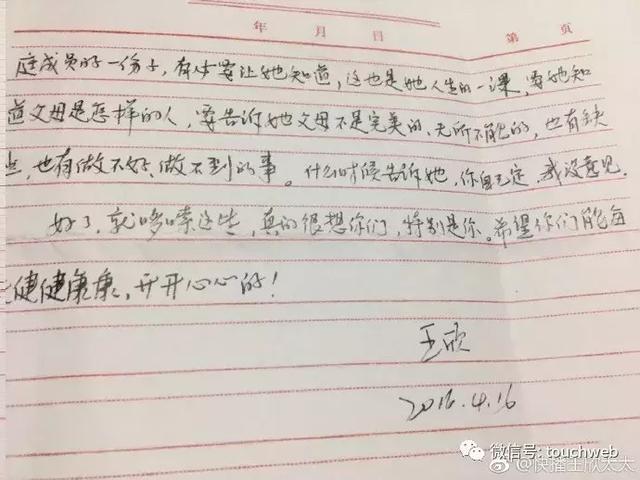 年 月 日 第 页
庭成员的一份子，有必要让她知道，这也是她人生的一课，要她知
道父母是怎样的人，要告诉她父母不是完美的、无所不能的，也有缺
点，也有做不好、做不到的事。什么时候告诉她，你自己定，我没意见。
好了，就哆嗦这些，真的很想你们，特别是你。希望你们能每
健健康康，开开心心的！
王欣
2016.4.16
微信号: touchweb
@快播王欣太太